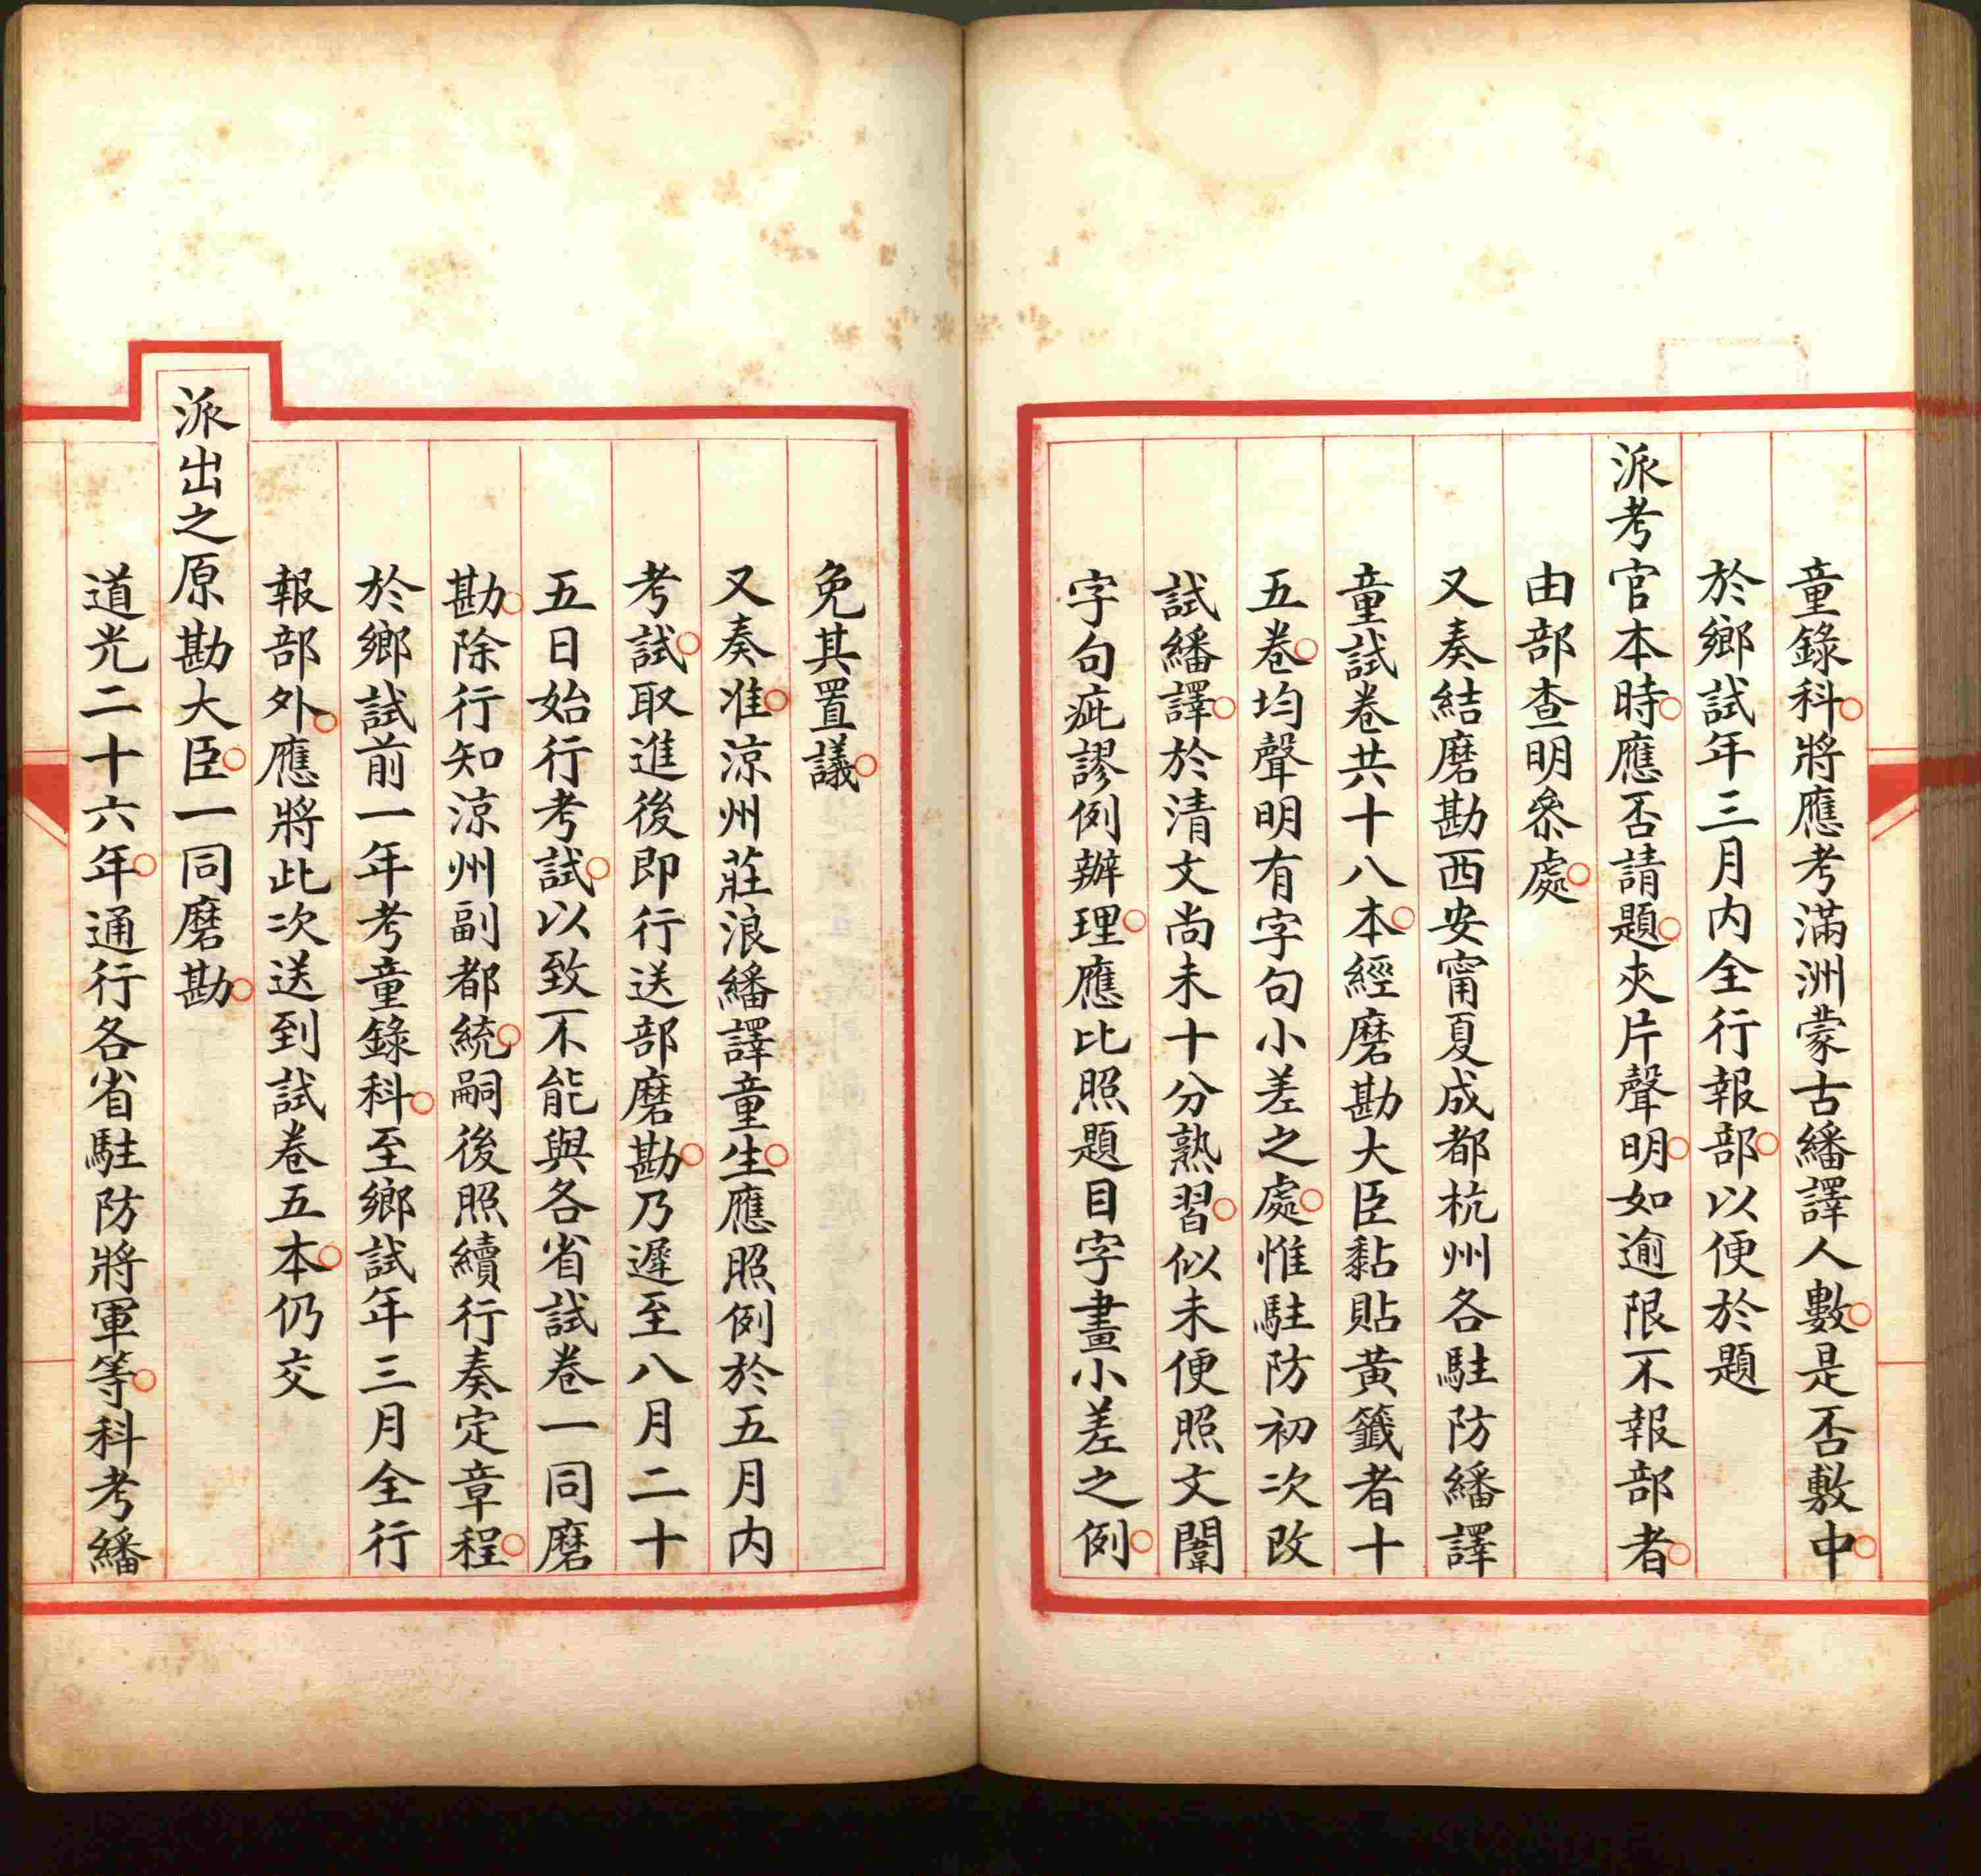 童錄科將應考滿洲蒙古繙譯人數是否敷中
於鄉試年三月内全行報部以便於題
派考官本時應否請題夾片聲明如逾限不報部者
由部查明叅處
又奏結磨勘西安甯夏成都杭州各駐防繙譯
童試卷共十八本經磨勘大臣黏貼黃籤者十
五卷均聲明有字句小差之處惟駐防初次改
試繙譯於清文尚未十分熟習似未便照文闈
字句疵謬例辦理應比照題目字畫小差之例
免其置議
又奏准涼州莊浪繙譯童生應照例於五月内
考試取進後即行送部磨勘乃遲至八月二十
五日始行考試以致不能與各省試卷一同磨
勘除行知涼州副都統嗣後照續行奏定章程
於鄉試前一年考童錄科至鄉試年三月全行
報部外應將此次送到試卷五本仍交
派出之原勘大臣一同磨勘
道光二十六年通行各省駐防將軍等科考繙